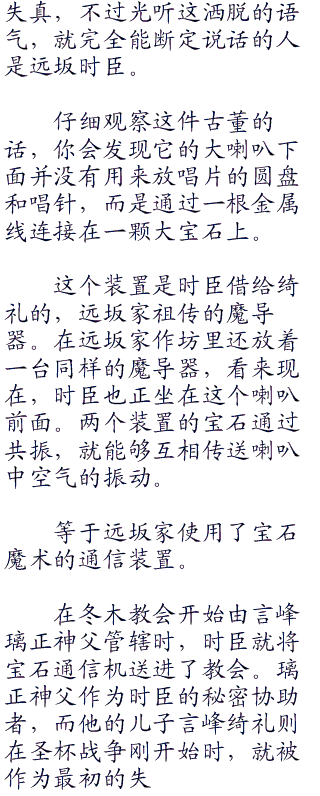 失真，不过光听这洒脱的语
气，就完全能断定说话的人
是远坂时臣。
仔细观察这件古董的
话，你会发现它的大喇叭下
面并没有用来放唱片的圆盘
和唱针，而是通过一根金属
线连接在一颗大宝石上。
这个装置是时臣借给绮
礼的，远坂家祖传的魔导
器。在远坂家作坊里还放着
一台同样的魔导器，看来现
在，时臣也正坐在这个喇叭
前面。两个装置的宝石通过
共振，就能够互相传送喇叭
中空气的振动。
等于远坂家使用了宝石
魔术的通信装置。
在冬木教会开始由言峰
璃正神父管辖时，时臣就将
宝石通信机送进了教会。璃
正神父作为时臣的秘密协助
者，而他的儿子言峰绮礼则
在圣杯战争刚开始时，就被
作为最初的失